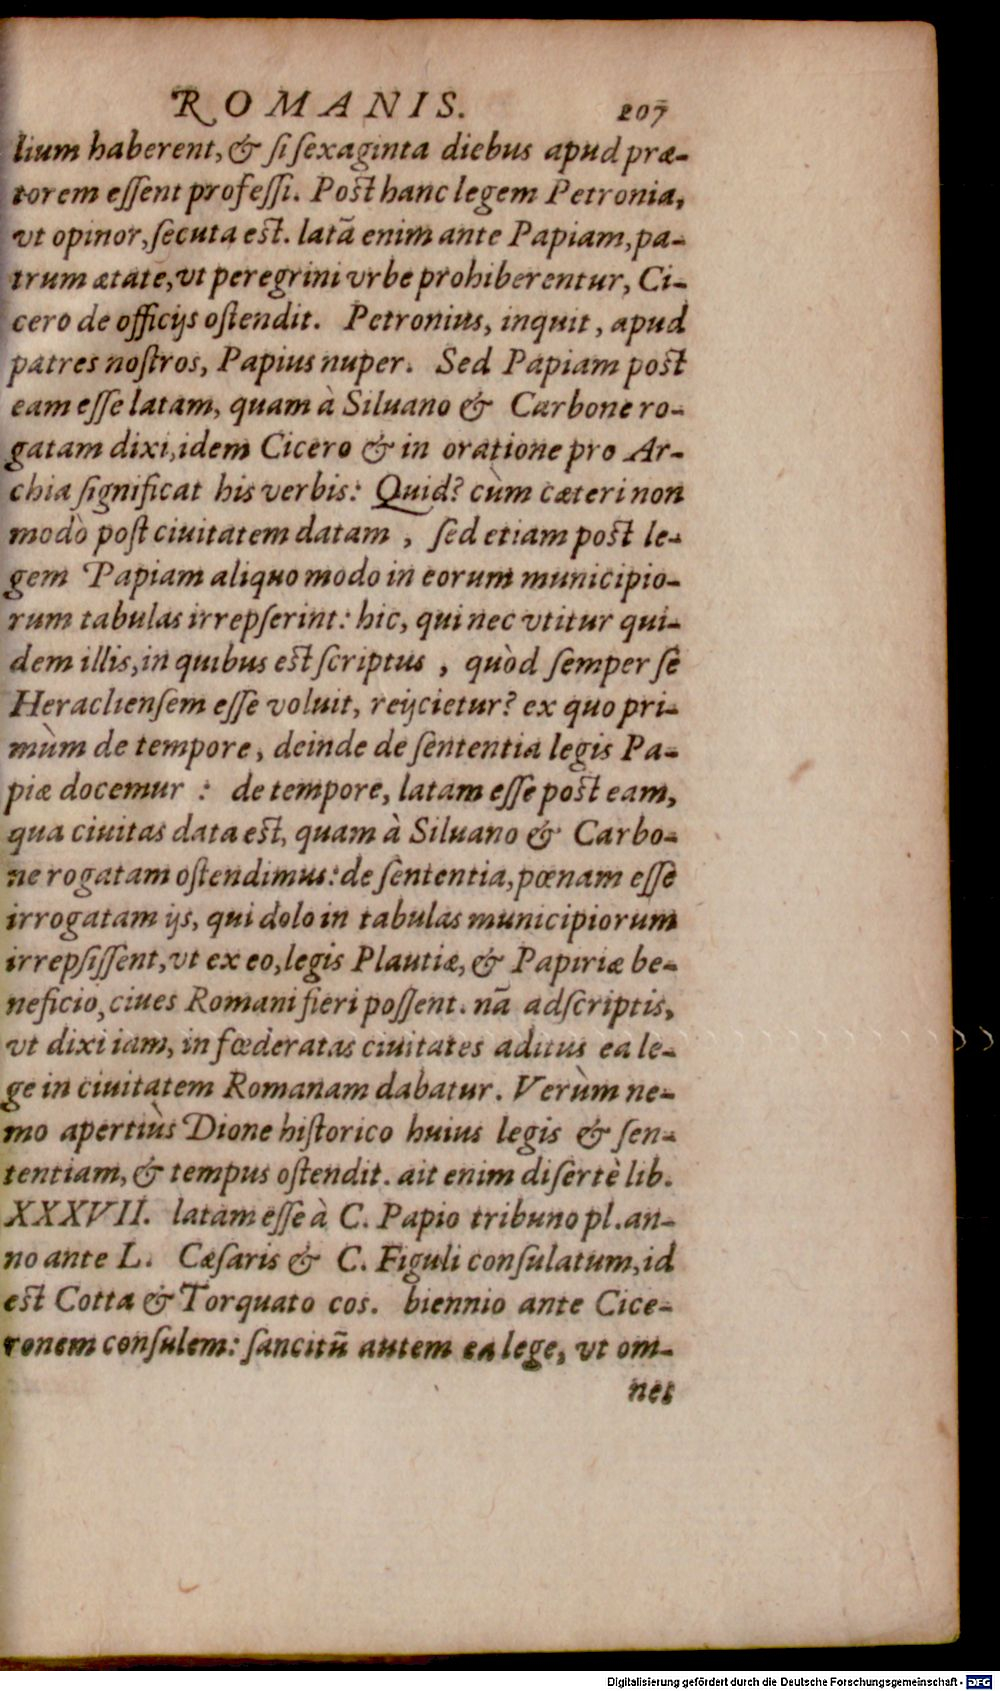 ROMANIS. 207
lium haberent, & si sexaginta diebus apud præ-
torem essent professi. Post hanc legem Petronia,
vt opinor, secuta est. latã enim ante Papiam, pa-
trum ætate, vt peregrini vrbe prohiberentur, Ci-
cero de officijs ostendit. Petronius, inquit, apud
patres nostros, Papius nuper. Sed Papiam post
eam esse latam, quam à Siluano & Carbone ro-
gatam dixi, idem Cicero & in oratione pro Ar-
chia significat his verbis: Quid? cùm cæteri non
modò post ciuitatem datam, sed etiam post le-
gem Papiam aliquo modo in eorum municipio-
rum tabulas irrepserint: hic, qui nec vtitur qui-
dem illis, in quibus est scriptus, quòd semper se
Heracliensem esse voluit, reijcietur? ex quo pri-
mùm de tempore, deinde de sententia legis Pa-
piæ docemur: de tempore, latam esse post eam,
qua ciuitas data est, quam à Siluano & Carbo-
ne rogatam ostendimus: de sententia, pœnam esse
irrogatam ijs, qui dolo in tabulas municipiorum
irrepsissent, vt ex eo, legis Plautiæ, & Papiriæ be-
neficio, ciues Romani fieri possent. nã adscriptis,
vt dixi iam, in fœderatas ciuitates aditus ea le-
ge in ciuitatem Romanam dabatur. Verùm ne-
mo apertiùs Dione historico huius legis & sen-
tentiam, & tempus ostendit. ait enim disertè lib.
XXXVII. latam esse à C. Papio tribuno pl. an-
no ante L. Cæsaris & C. Figuli consulatum, id
est Cotta & Torquato cos. biennio ante Cice-
ronem consulem: sancitũ autem ea lege, vt om-
nes
Digitalisierung gefördert durch die Deutsche Forschungsgemeinschaft - DFG